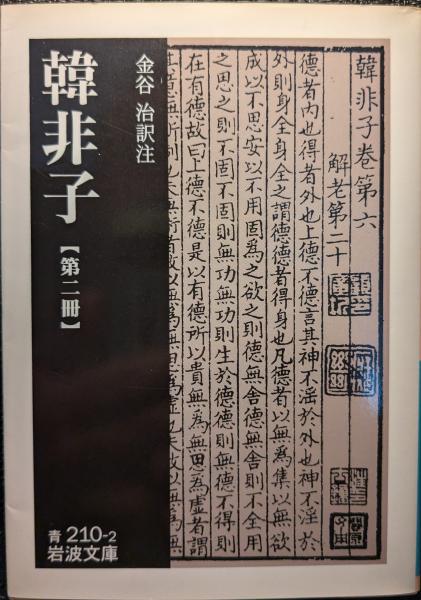 韓非子
【第二冊】
金谷 治訳注
青 210-2
岩波文庫
韓非子卷第六
解老第二十
德者內也得者外也上德不德言其神不淫於外也神不淫於
外則身全身全之謂德德者得身也凡德者以無為集以無欲
成以不思安以不用固為之欲之則德無舍德無舍則不全用
之思之則不固不固則無功無功則生於德德則無德不得則
在有德故曰上德不德是以有德所以貴無為無思為虛者謂